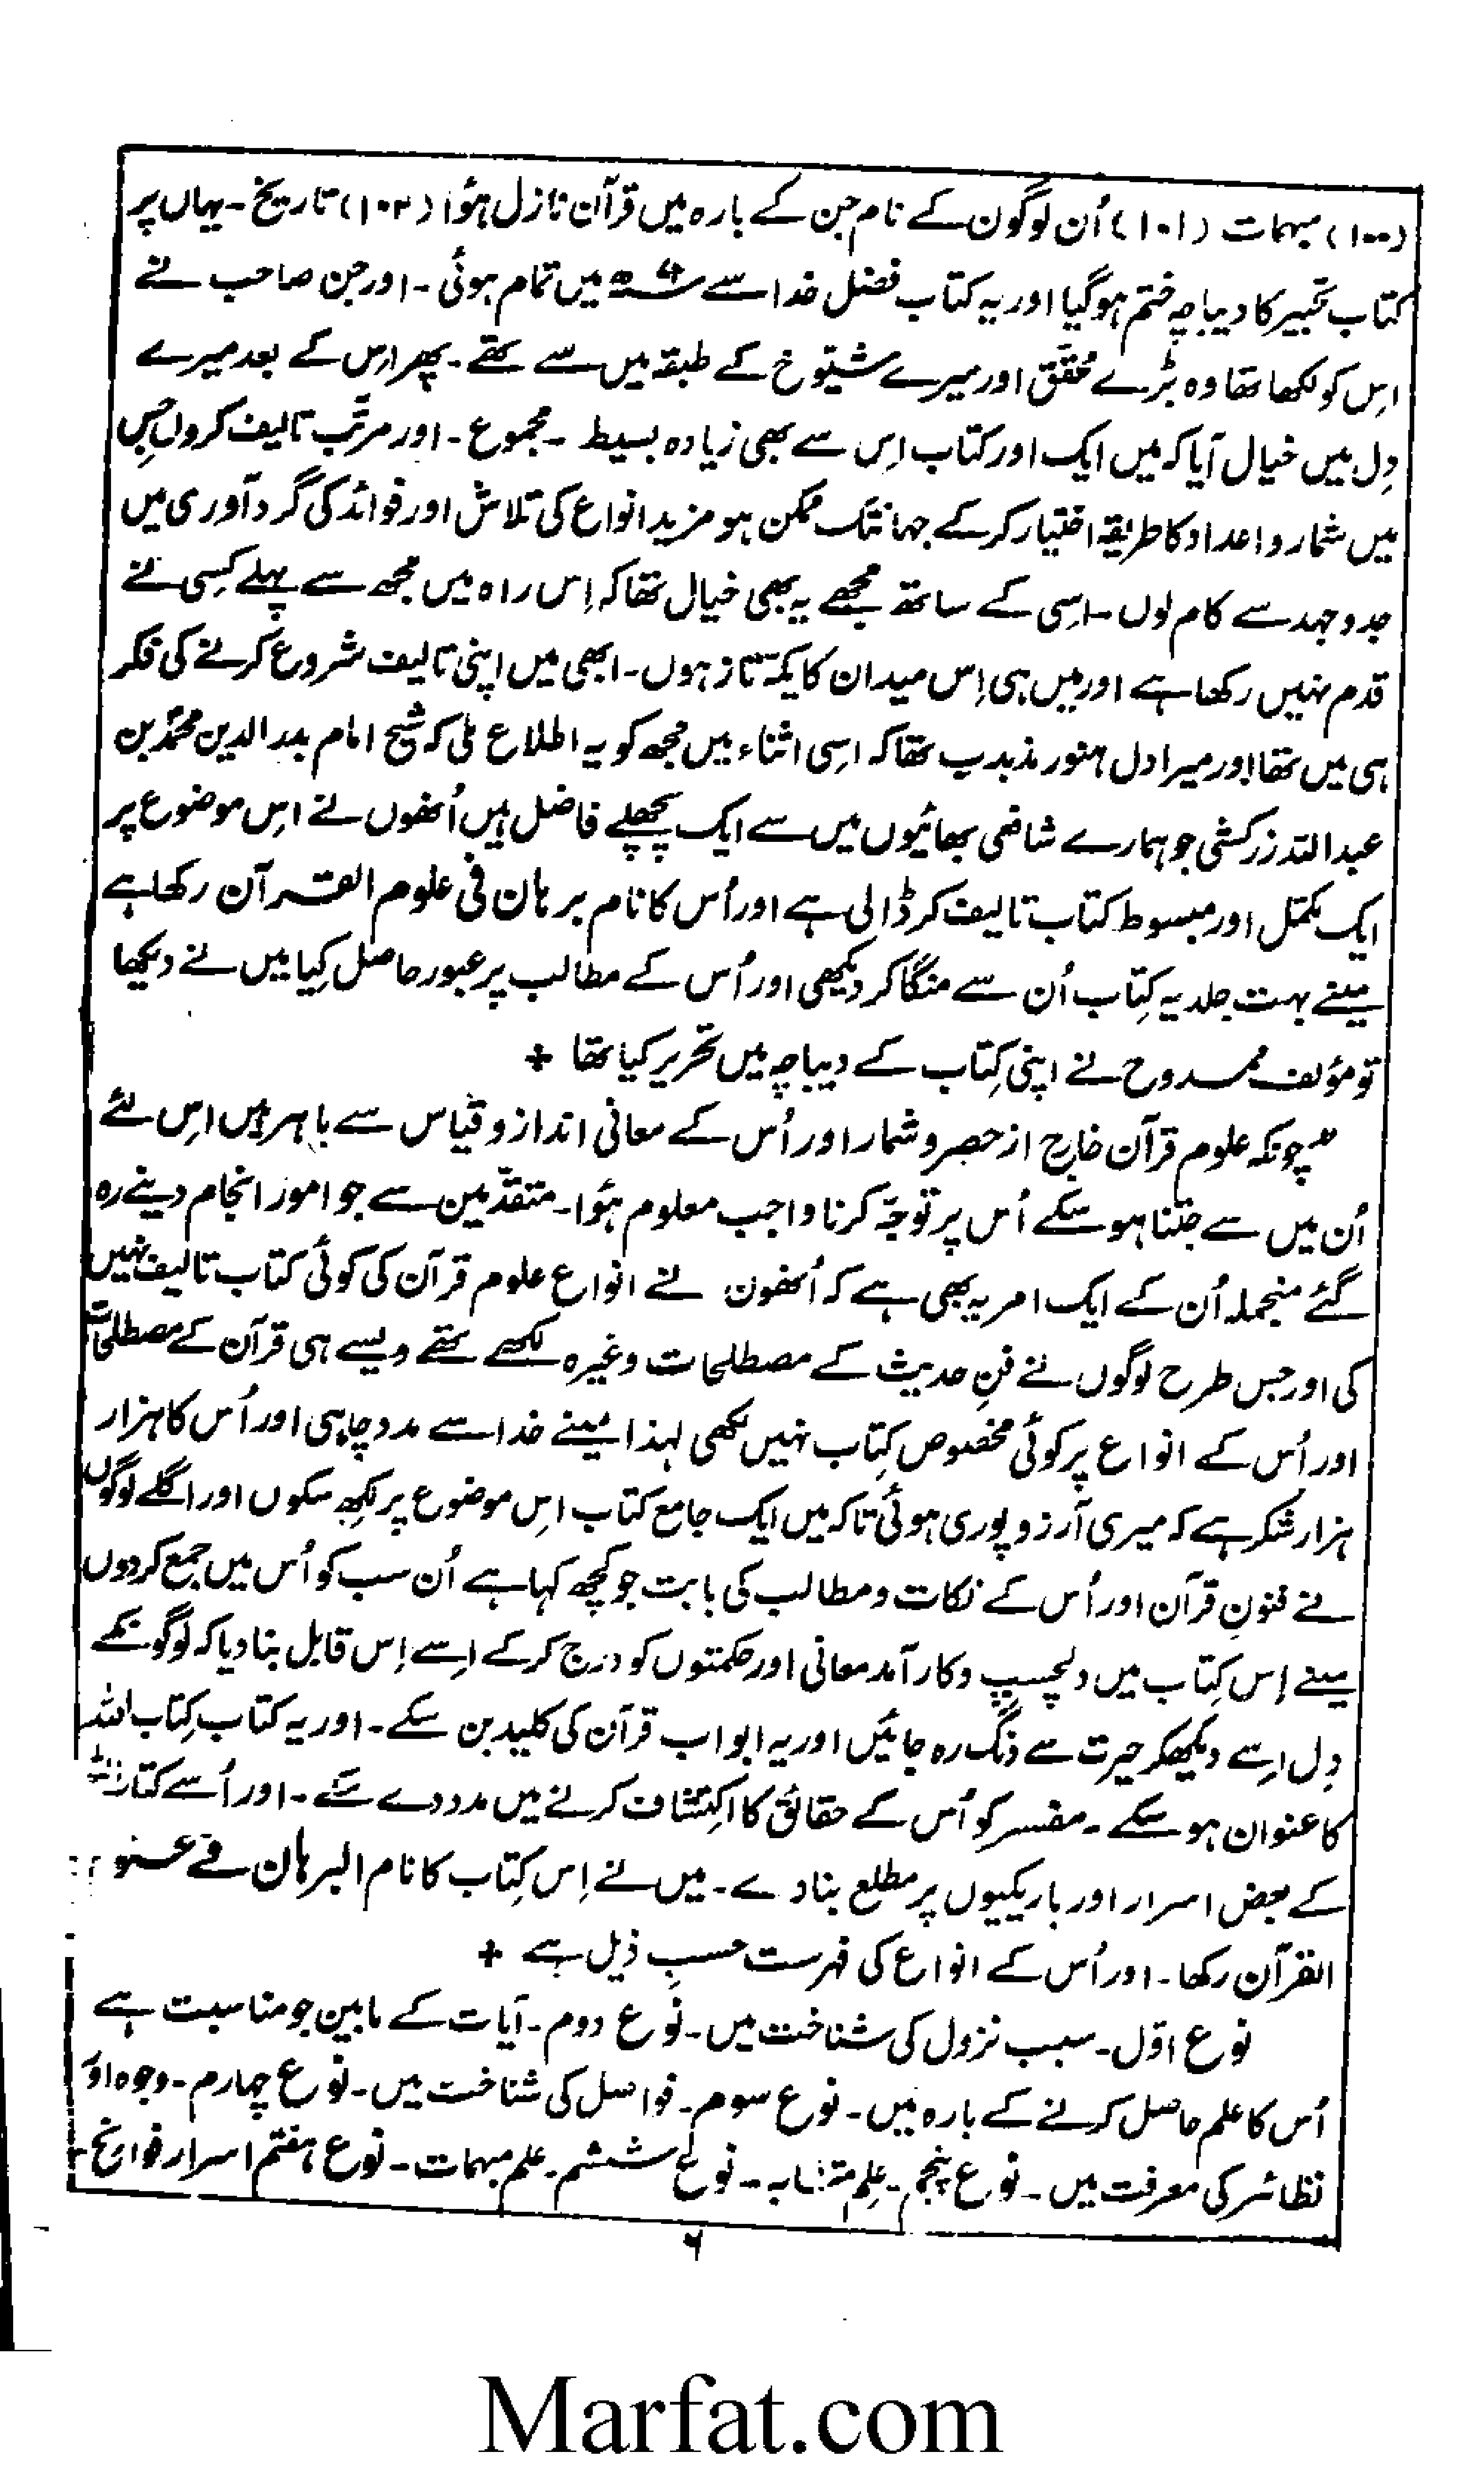 (۱۰۰) مبہمات (۱۰۱) اُن لوگوں کے نام جن کے بارہ میں قرآن نازل ہؤا (۱۰۲) تاریخ ۔ یہاں پر
کتاب تحبیر کا دیباچہ ختم ہوگیا اور یہ کتاب فضل خدا سے میں تمام ہوئی ۔ اور جن صاحب نے
اِس کو لکھا تھا وہ بڑے محقّق اور میرے شیوخ کے طبقہ میں سے تھے ۔ پھر اِس کے بعد میرے
دِل میں خیال آیا کہ میں ایک اور کتاب اِس سے بھی زیادہ بسیط ۔ مجموع ۔ اور مرتّب تالیف کروں جِس
میں شمار و اعداد کا طریقہ اختیار کر کے جہانتک ممکن ہو مزید انواع کی تلاش اور فوائد کی گرد آوری میں
جد و جہد سے کام لوں ۔ اسِی کے ساتھ مجھے یہ بھی خیال تھا کہ اِس راہ میں مجھ سے پہلے کِسی نے
قدم نہیں رکھا ہے اور میں ہی اِس میدان کا یکّہ تاز ہوں ۔ ابھی میں اپنی تالیف شروع کرنے کی فکر
ہی میں تھا اور میرا دل ہنوز مذبذب تھا کہ اسِی اثناء میں مجھ کو یہ اطلاع ملی کہ شیخ امام بدر الدین محمّد بن
عبد اللہ زرکشی جو ہمارے شافعی بھائیوں میں سے ایک پچھلے فاضل ہیں اُنھوں نے اِس موضوع پر
ایک مکمّل اور مبسوط کتاب تالیف کر ڈالی ہے اور اُس کا نام برہان فی علوم القرآن رکھا ہے
مینے بہت جلد یہ کِتاب اُن سے منگا کر دیکھی اور اُس کے مطالب پر عبور حاصل کِیا میں نے دیکھا
تو مؤلف ممدوح نے اپنی کِتاب کے دیباچہ میں تحریر کیا تھا +
”چونکہ علوم قرآن خارج از حصر و شمار اور اُس کے معانی انداز و قیاس سے باہر ہیں اِس لئے
اُن میں سے جتنا ہو سکے اُس پر توجّہ کرنا واجب معلوم ہؤا ۔ متقدّمین سے جو امور انجام دینے رہ
گئے منجملہ اُن کے ایک امر یہ بھی ہے کہ اُنھوں نے انواع علوم قرآن کی کوئی کتاب تالیف نہیں
کی اور جس طرح لوگوں نے فنِ حدیث کے مصطلحات وغیرہ لکھے تھے ویسے ہی قرآن کے مصطلحات
اور اُس کے انواع پر کوئی مخصوص کِتاب نہیں لکھی لہذا مینے خدا سے مدد چاہی اور اُس کا ہزار
ہزار شکر ہے کہ میری آرزو پوری ہوئی تاکہ میں ایک جامع کتاب اِس موضوع پر لکھ سکوں اور اگلے لوگوں
نے فنونِ قرآن اور اُس کے نکات و مطالب کی بابت جو کچھ کہا ہے اُن سب کو اُس میں جمع کردوں
مینے اِس کِتاب میں دلچسپ و کارآمد معانی اور حکمتوں کو درج کر کے اِسے اِس قابل بنا دیا کہ لوگونکے
دِل اِسے دیکھکر حیرت سے دنگ رہ جائیں اور یہ ابواب قرآن کی کلید بن سکے ۔ اور یہ کتاب کِتاب اللہ
کا عنوان ہو سکے ۔ مفسر کو اُس کے حقائق کا اکتشاف کرنے میں مدد دے سکے ۔ اور اُسے
کے بعض اسرار اور باریکیوں پر مطلع بنا دے ۔ میں نے اِس کِتاب کا نام البرہان فے
القرآن رکھا ۔ اور اُس کے انواع کی فہرست حسبِ ذیل ہے +
نوع اوّل ۔ سبب نزول کی شناخت میں ۔ نوع دوم ۔ آیات کے مابین جو مناسبت ہے
اُس کا علم حاصل کرنے کے بارہ میں ۔ نوع سوم ۔ فواصل کی شناخت میں ۔ نوع چہارم ۔ وجوہ اور
نظائر کی معرفت میں ۔ نوع پنجم ۔ علِم متشابہ ۔ نوع ششم ۔ علم مبہمات ۔ نوع ہفتم اسرار فواتح ۔
۶
Marfat.com